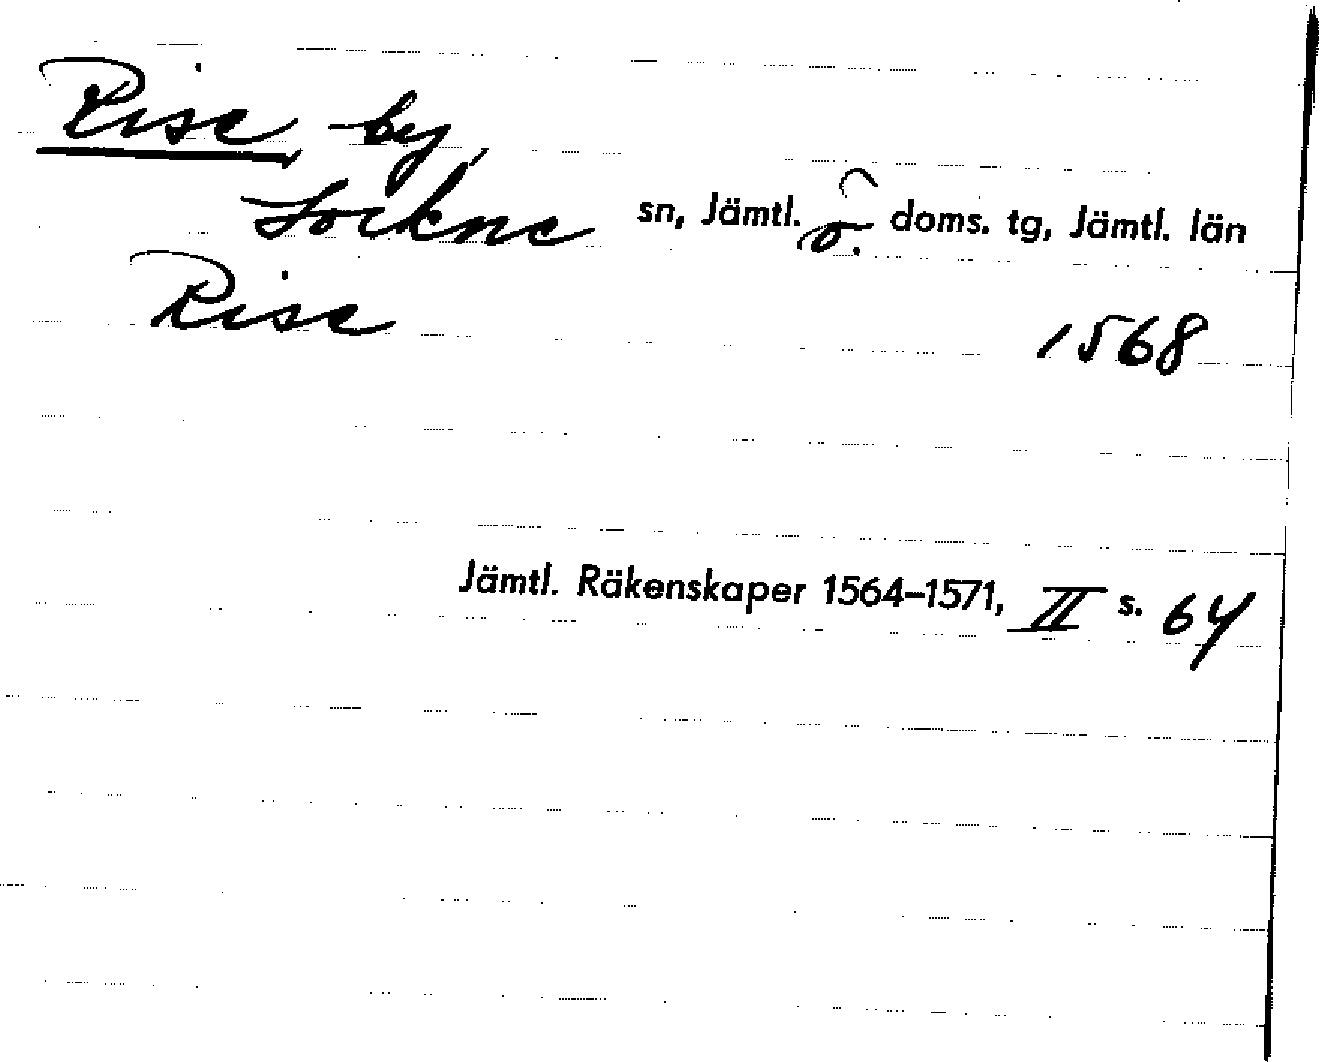 Rise, by,
Lockne sn, Jämtl. ö. doms. tg, Jämtl. län
Rise 1568
Jämtl. Räkenskaper 1564–1571, II s. 64